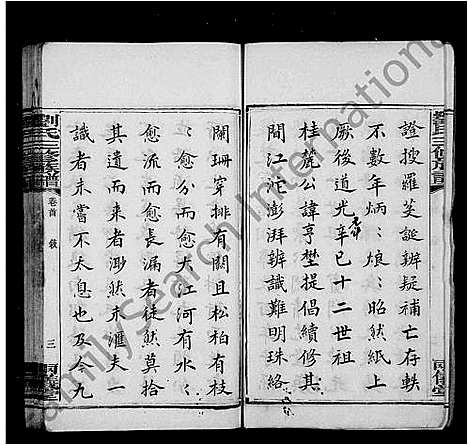 證搜羅芟誕辨疑補亡存軼
不數年炳〻烺〻昭然紙上
厥後道光辛巳十二世祖
元年
桂麓公諱亨埜提倡續修其
間江沱澎湃辨識難明珠絡
闌珊穿排有闕且松柏有枝
愈流而愈大江河有水〻
愈流而愈長漏者徒然莫拾
其遺而來者溯然未滙夫一
識者未嘗不太息也及今九
劉氏三修族譜
卷首
敘
三
兩儀堂
FamilySearch International